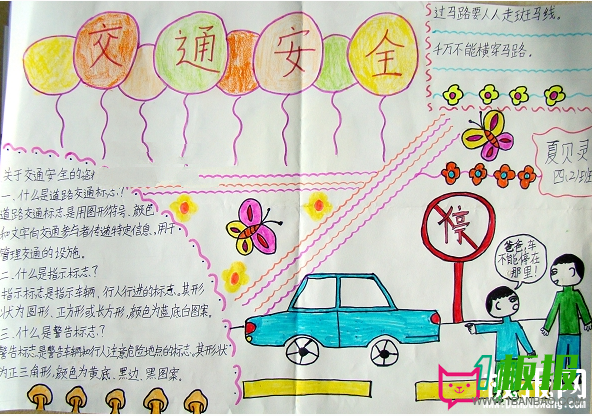 交通安全
过马路要人人走斑马线。
千万不能横穿马路。
夏贝灵
四.(2)班
关于交通安全的
一.什么是道路交通标志!
道路交通标志是用图形符号、颜色
和文字向交通参与者传递特定信息,用于
管理交通的设施。
二.什么是指示标志?
指示标志是指示车辆、行人行进的标志。其形
状为圆形、正方形或长方形,颜色为蓝底白图案。
三.什么是警告标志?
警告标志是警告车辆和行人注意危险地点的标志。其形状
为正三角形,颜色为黄底、黑边、黑图案。
停
爸爸,车
不能停在
那里!
板报网